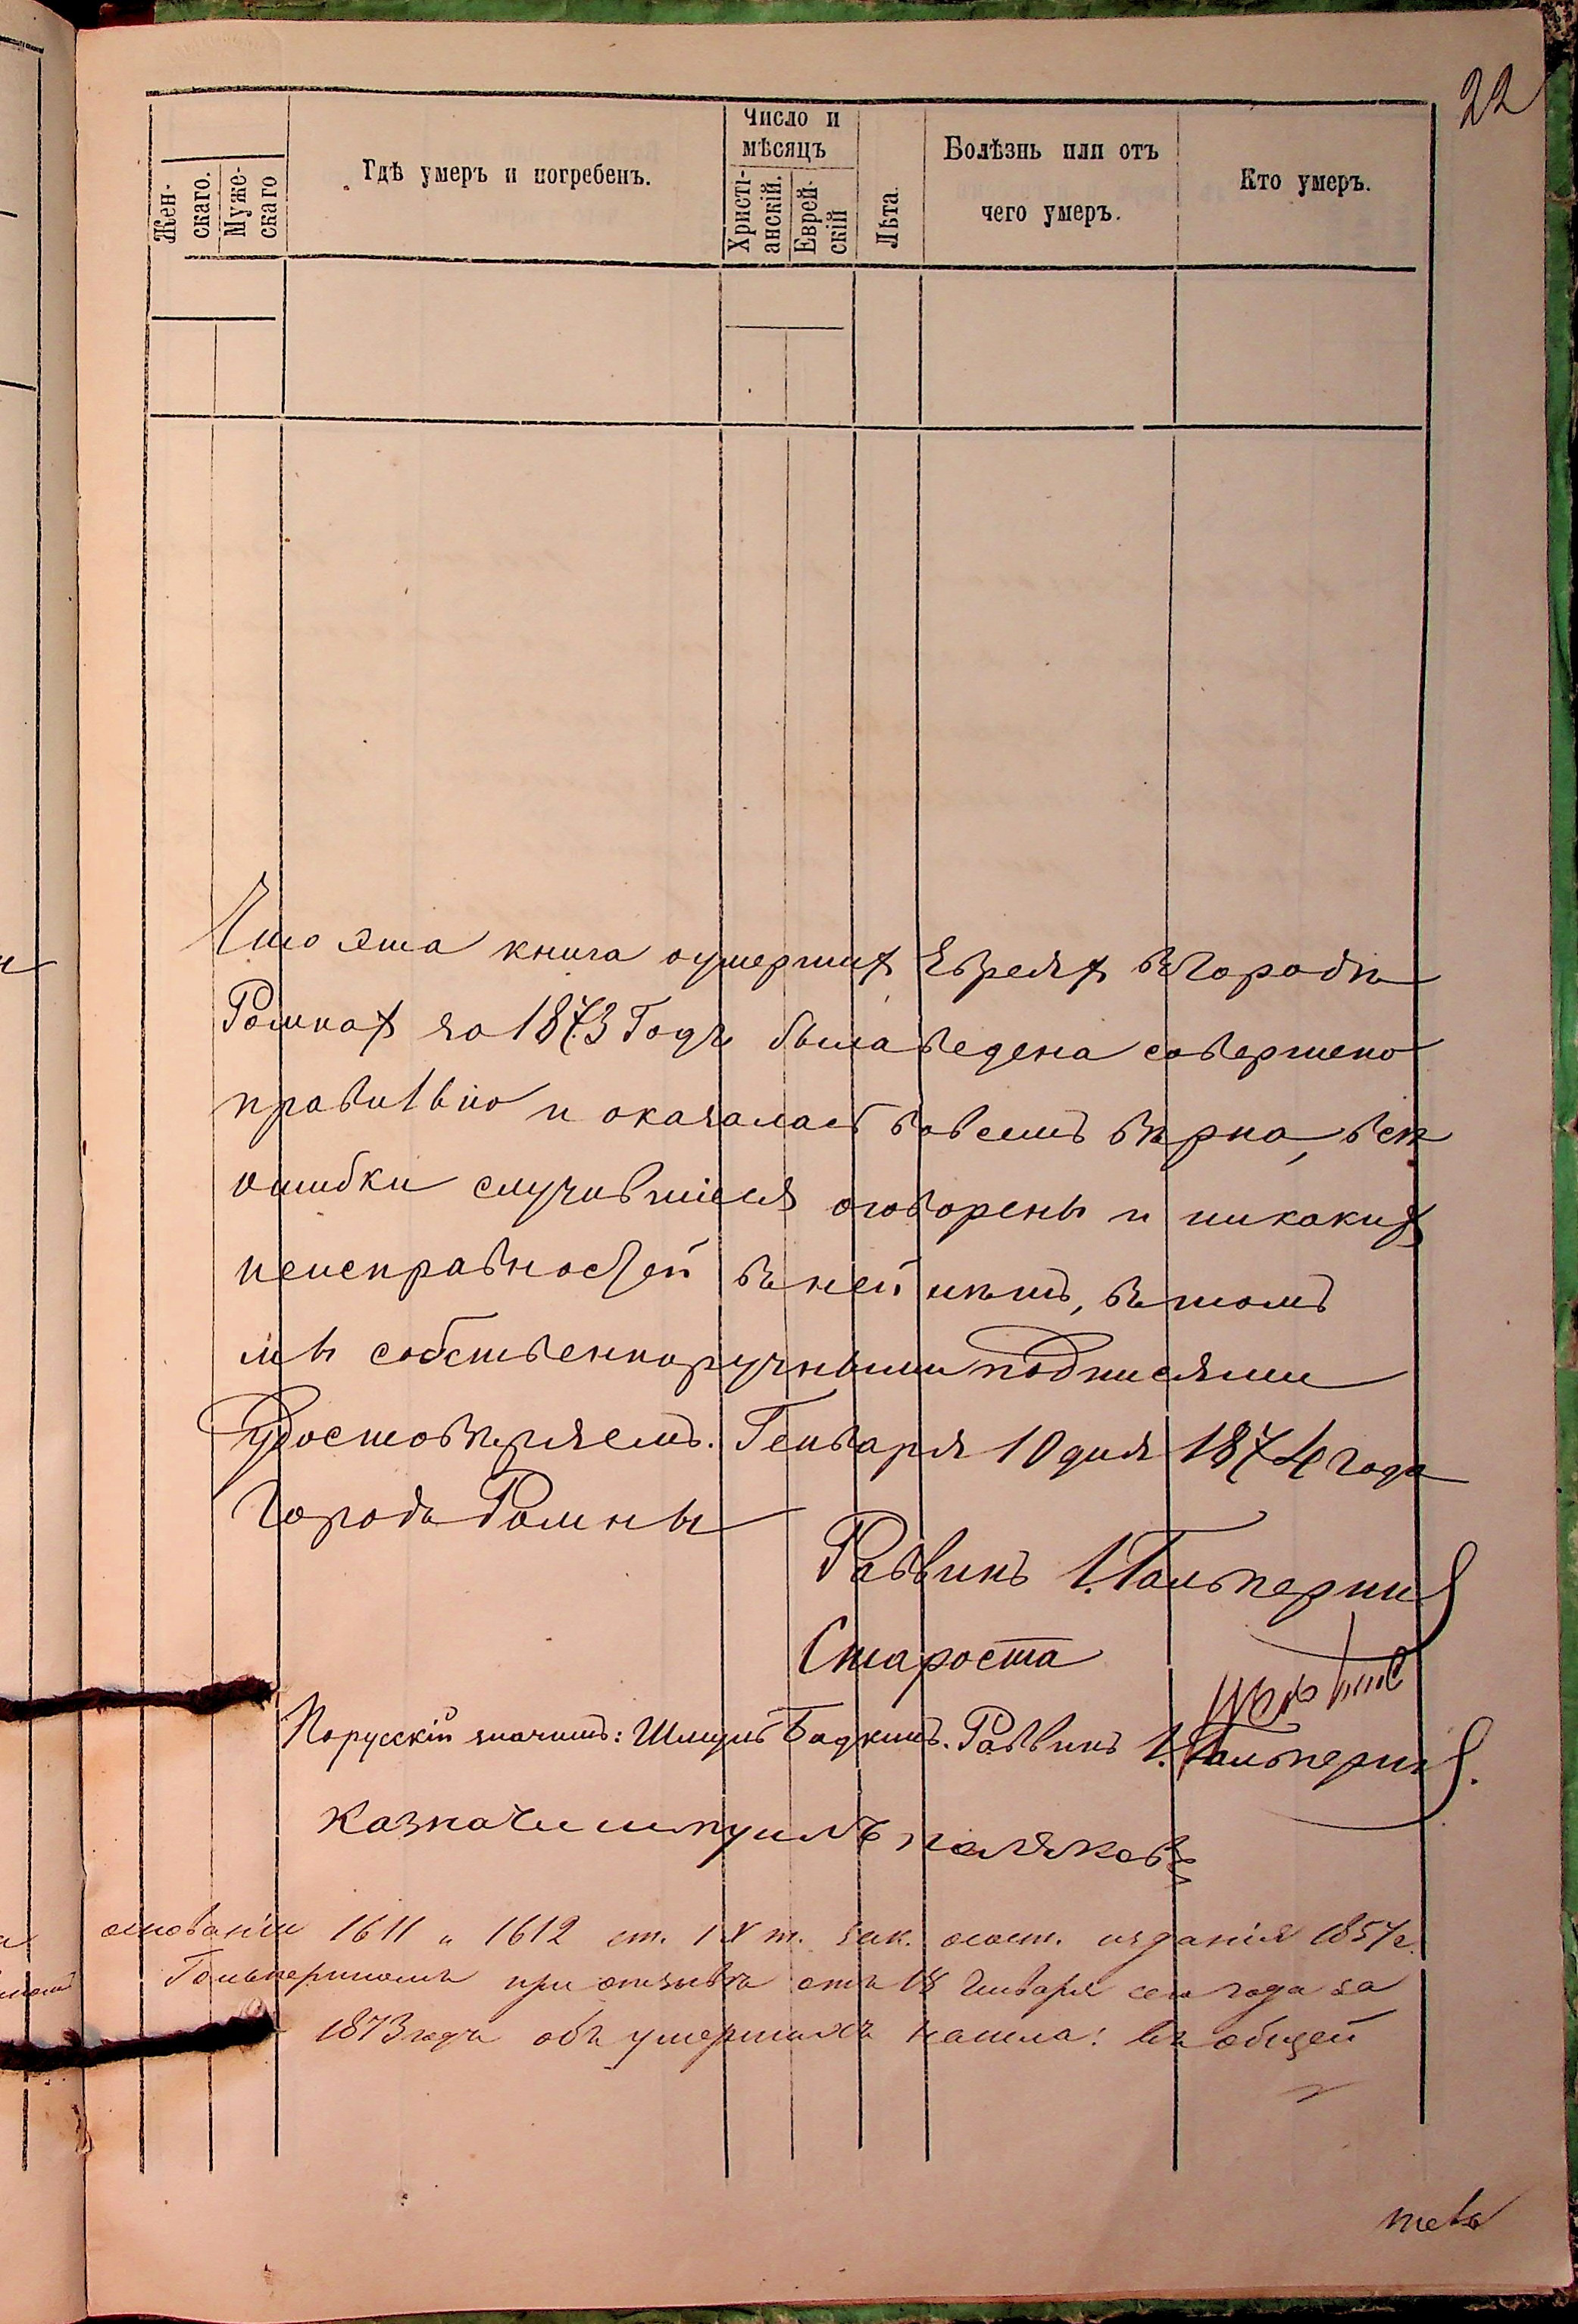 22
Жен-
скаго.
Муже-
скаго
Гдѣ умеръ и погребенъ.
Число и
мѣсяцъ
Христі-
анскій.
Еврей-
скій
Лѣта
Болѣзнь или отъ
чего умеръ.
Кто умеръ.
Что эта книга о умершихъ Евреяхъ въ городѣ
Ромнахъ за 1873 Годъ была ведена совершено
правильно и оказалась вовсемъ вѣрна, всѣ
ошибки случившіеся оговорены и никакихъ
неисправностей въ ней нѣтъ, въ томъ
мы собственноручными подписями
Удостовѣряемъ. Генваря 10 дня 1874 года
Городъ Ромны
Раввинъ І. Гальперинъ
Староста
Порусскій значитъ: Шмуль Бадкинъ. Раввинъ І. Гальперинъ.
Казначи шмуилъ паляковъ
основаніи 1611 и 1612 ст. IX т. зак. о сост. изданія 1857 г.
Гальпериномъ при отзывѣ отъ 18 Генваря сего года за
1873 годъ объ умершихъ нашла: въ общей